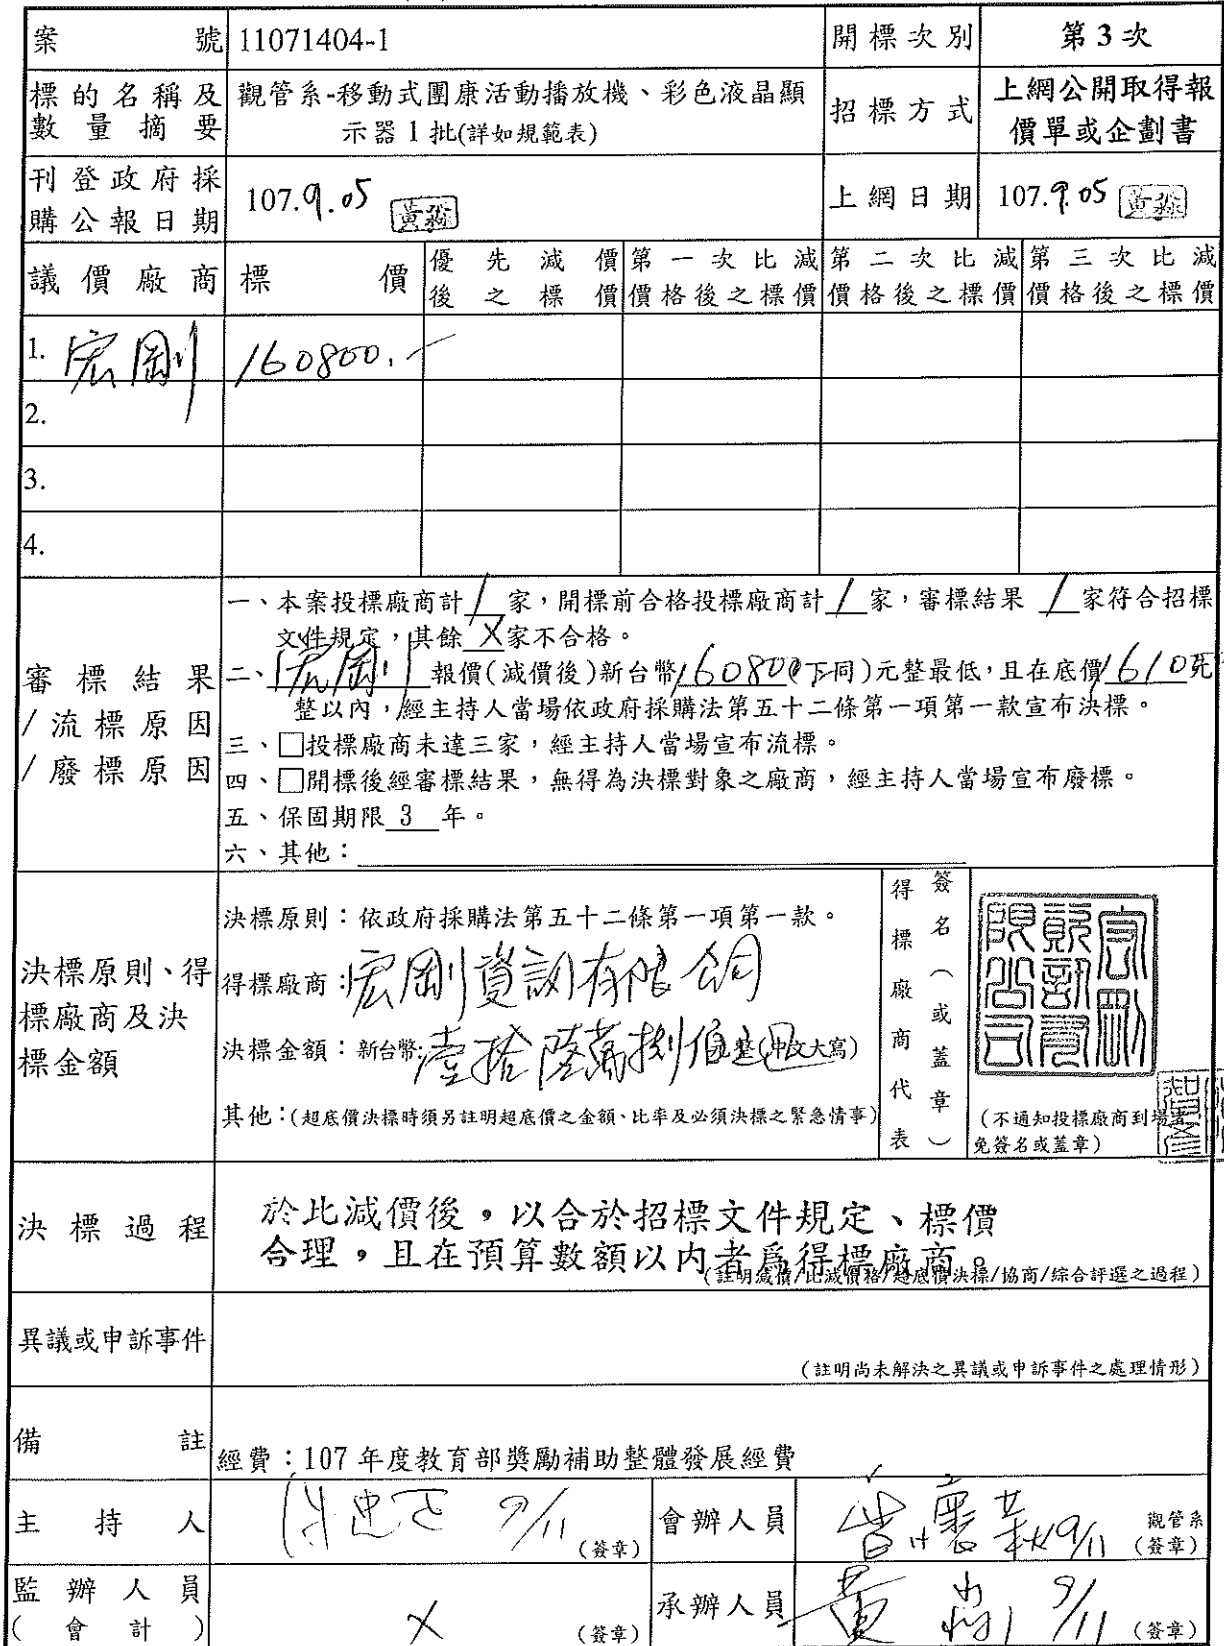 案號 11071404-1 開標次別 第3次
標的名稱及數量摘要 觀管系-移動式團康活動播放機、彩色液晶顯
示器1批(詳如規範表) 招標方式 上網公開取得報
價單或企劃書
刊登政府採購公報日期 107.9.05 上網日期 107.9.05
議價廠商 標價 優先減價後之標價 第一次比減價格後之標價 第二次比減價格後之標價 第三次比減價格後之標價
1. 宏剛 160800.-
2.
3.
4.
審標結果
/流標原因
/廢標原因
一、本案投標廠商計 1 家,開標前合格投標廠商計 1 家,審標結果 1 家符合招標
文件規定,其餘 X 家不合格。
二、宏剛 報價(減價後)新台幣 160800(下同)元整最低,且在底價1610元
整以內,經主持人當場依政府採購法第五十二條第一項第一款宣布決標。
三、□投標廠商未達三家,經主持人當場宣布流標。
四、□開標後經審標結果,無得為決標對象之廠商,經主持人當場宣布廢標。
五、保固期限 3 年。
六、其他:
決標原則、得
標廠商及決
標金額
決標原則:依政府採購法第五十二條第一項第一款。
得標廠商:宏剛資訊有限公司
決標金額:新台幣:壹拾陸萬捌佰元整(中文大寫)
其他:(超底價決標時須另註明超底價之金額、比率及必須決標之緊急情事)
得標廠商代表
簽名(或蓋章)
宏剛資訊有限公司
(不通知投標廠商到場者
免簽名或蓋章)
決標過程
於此減價後,以合於招標文件規定、標價
合理,且在預算數額以內者為得標廠商。
(註明減價/比減價格/超底價決標/協商/綜合評選之過程)
異議或申訴事件
(註明尚未解決之異議或申訴事件之處理情形)
備註 經費:107 年度教育部獎勵補助整體發展經費
主持人 9/11 (簽章) 會辦人員 9/11 觀管系
(簽章)
監辦人員
(會計) X (簽章) 承辦人員 黃 9/11 (簽章)